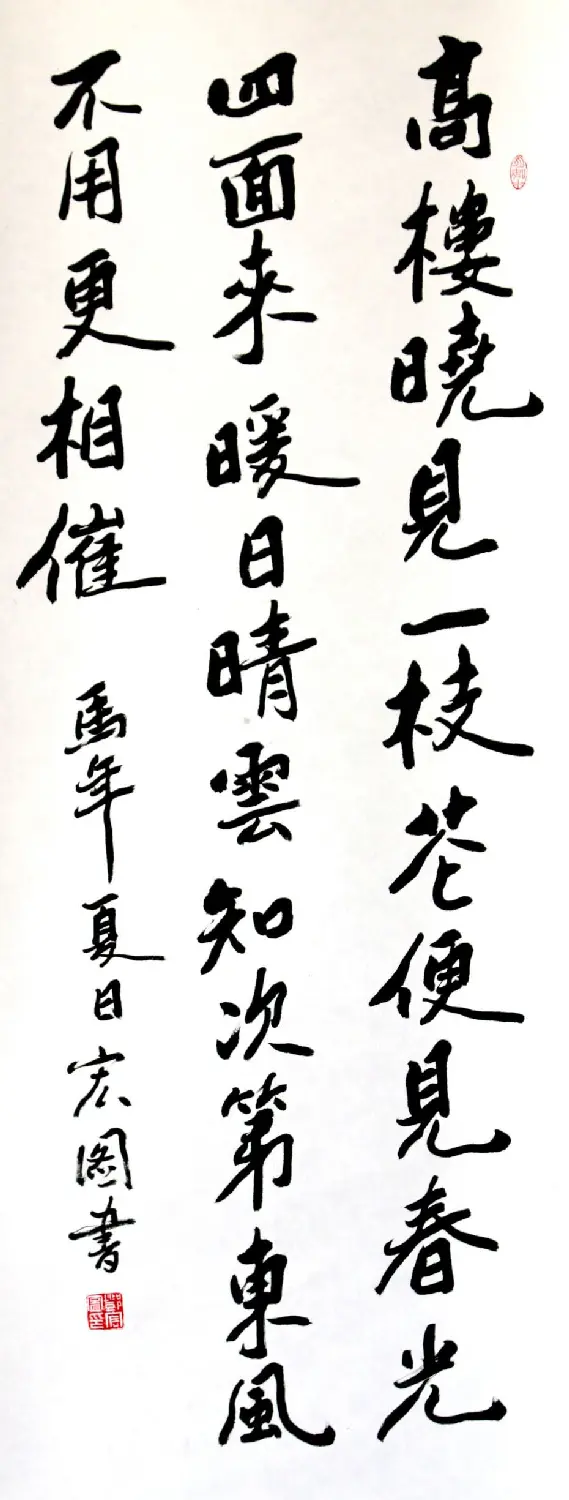 高樓曉見一枝花便見春光
四面來暖日晴雲知次第東風
不用更相催
馬年夏日宏图書